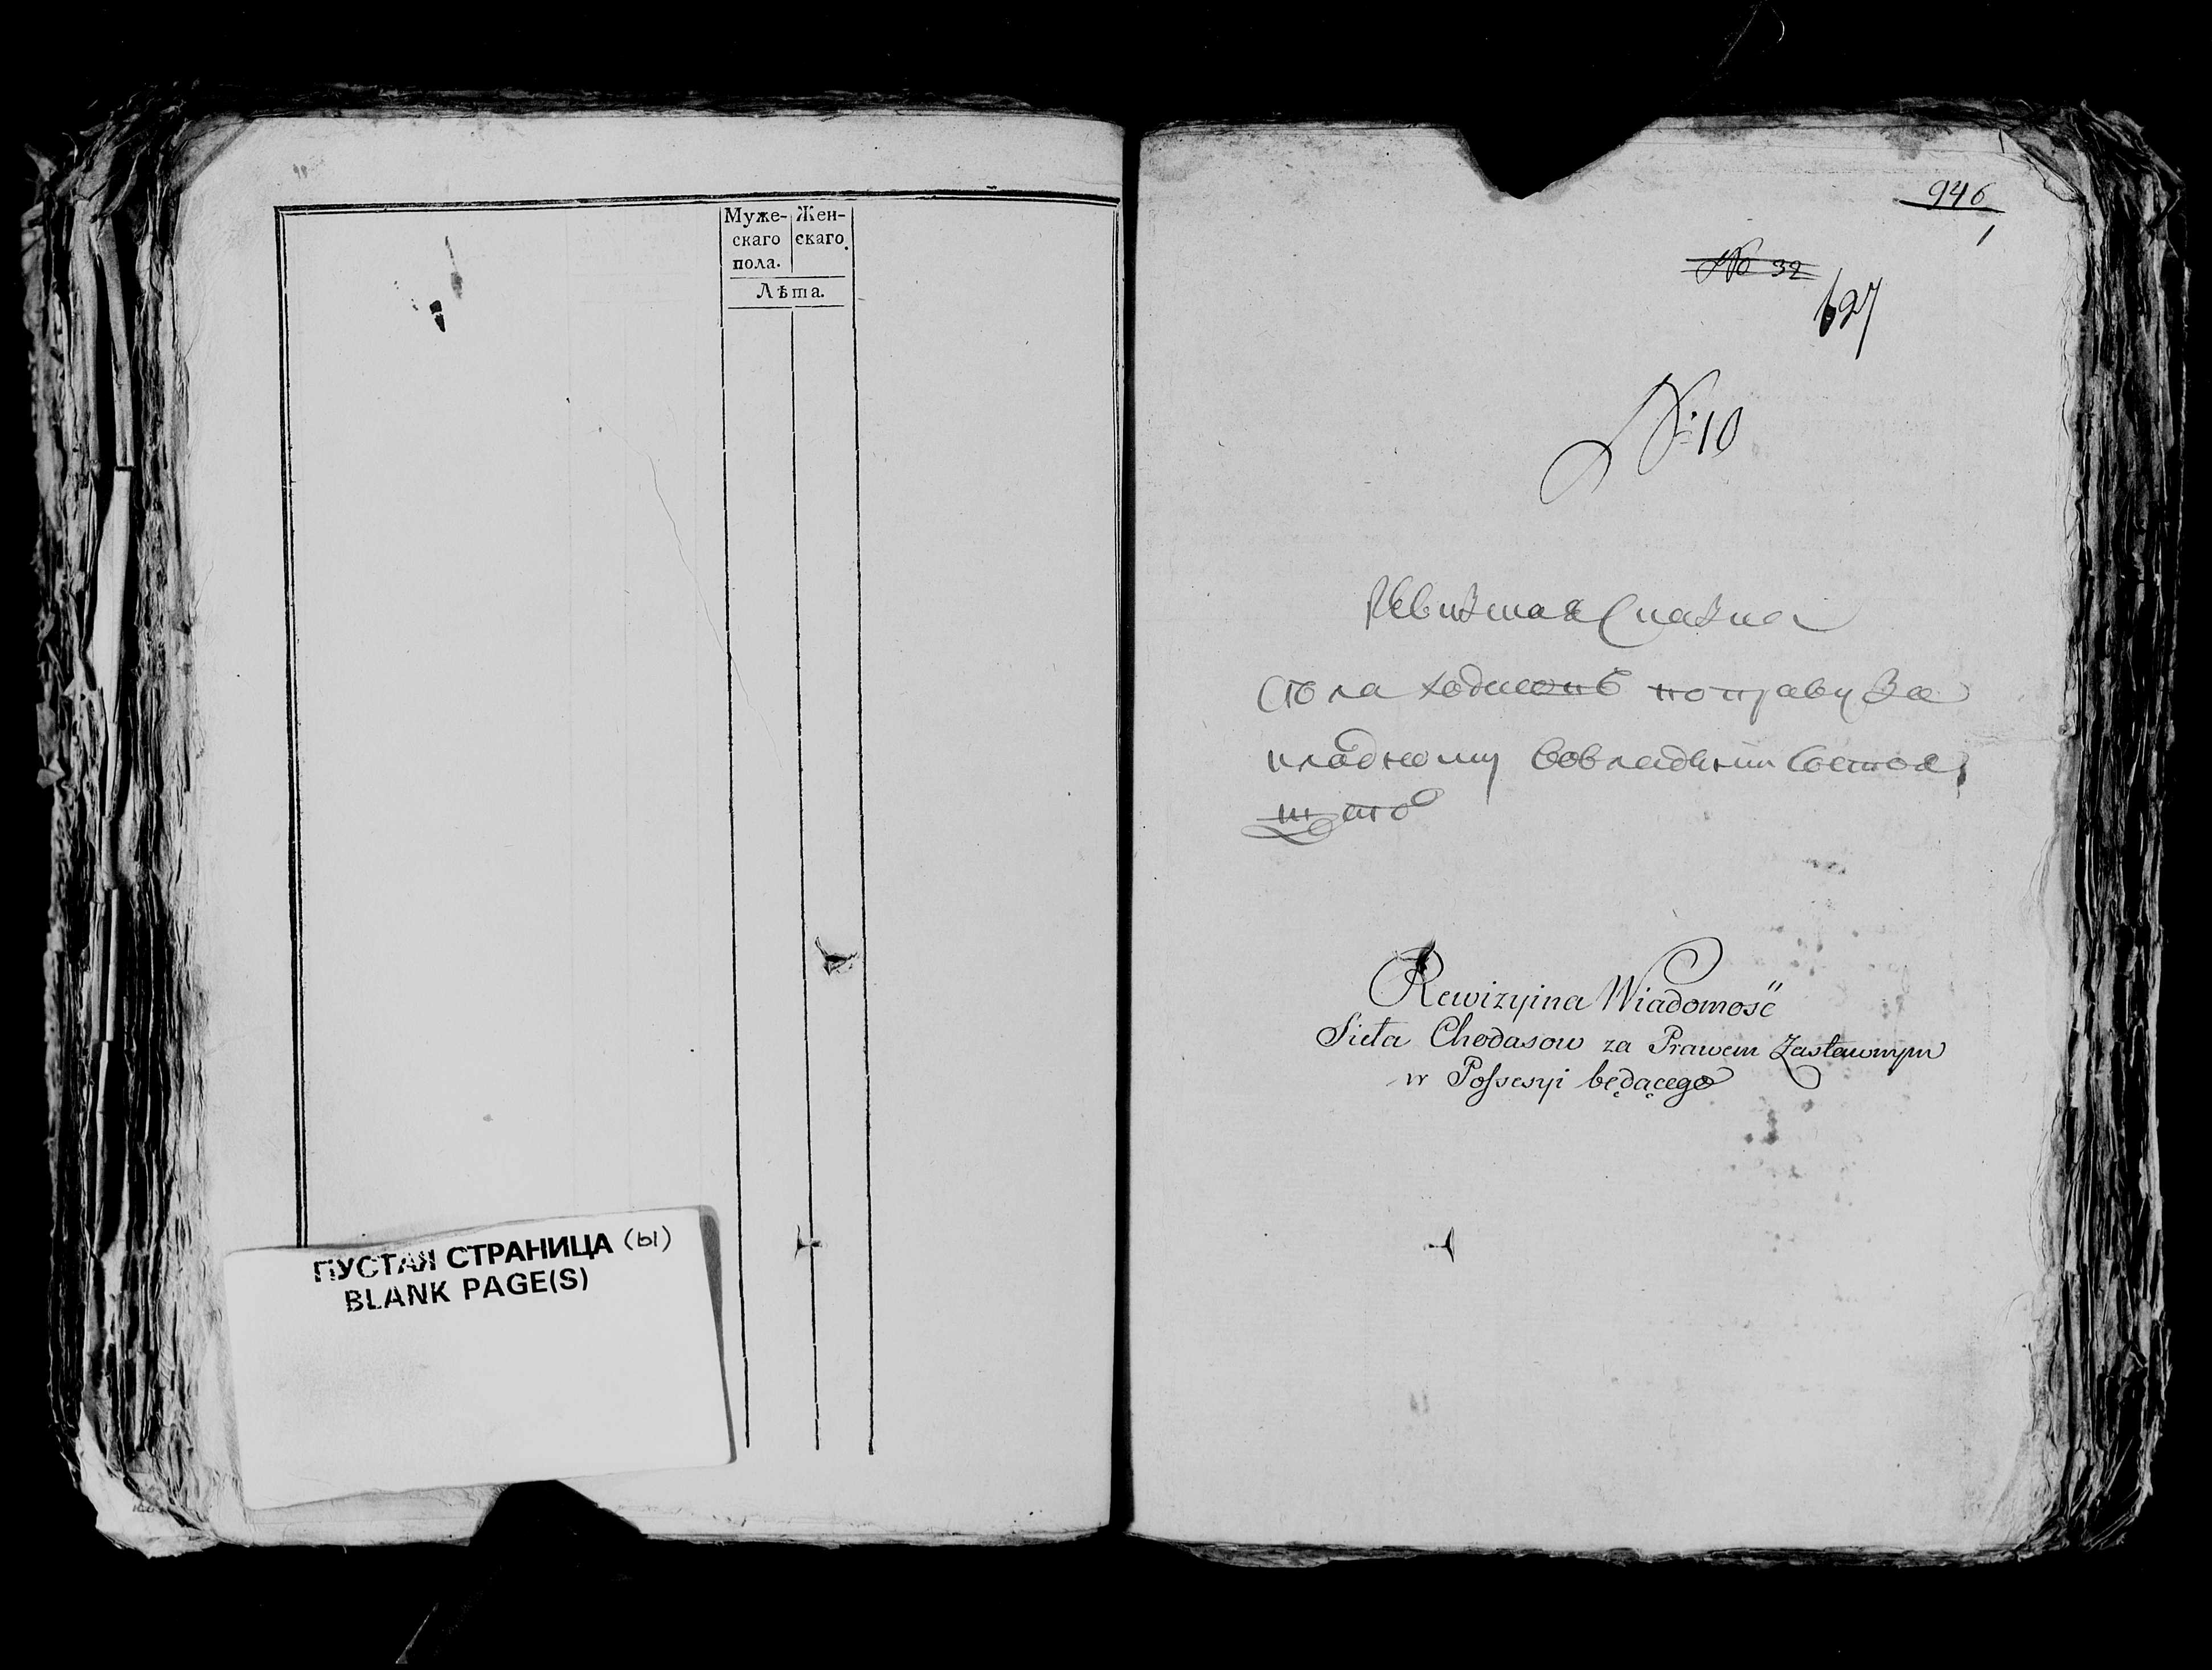 Муже- Жен-
скаго скаго
пола.
Лѣта.
ПУСТАЯ СТРАНИЦА (ы)
BLANK PAGE(S)
946
1
№ 32
627
№ 10
Ревизкая Сказка
Села Ходасовъ по праву За
кладному вовладении Состоя,
щето
Rewizyina Wiadomość
Sieła Chodasow za Prawem Zastawnym
w Possesyi będącego